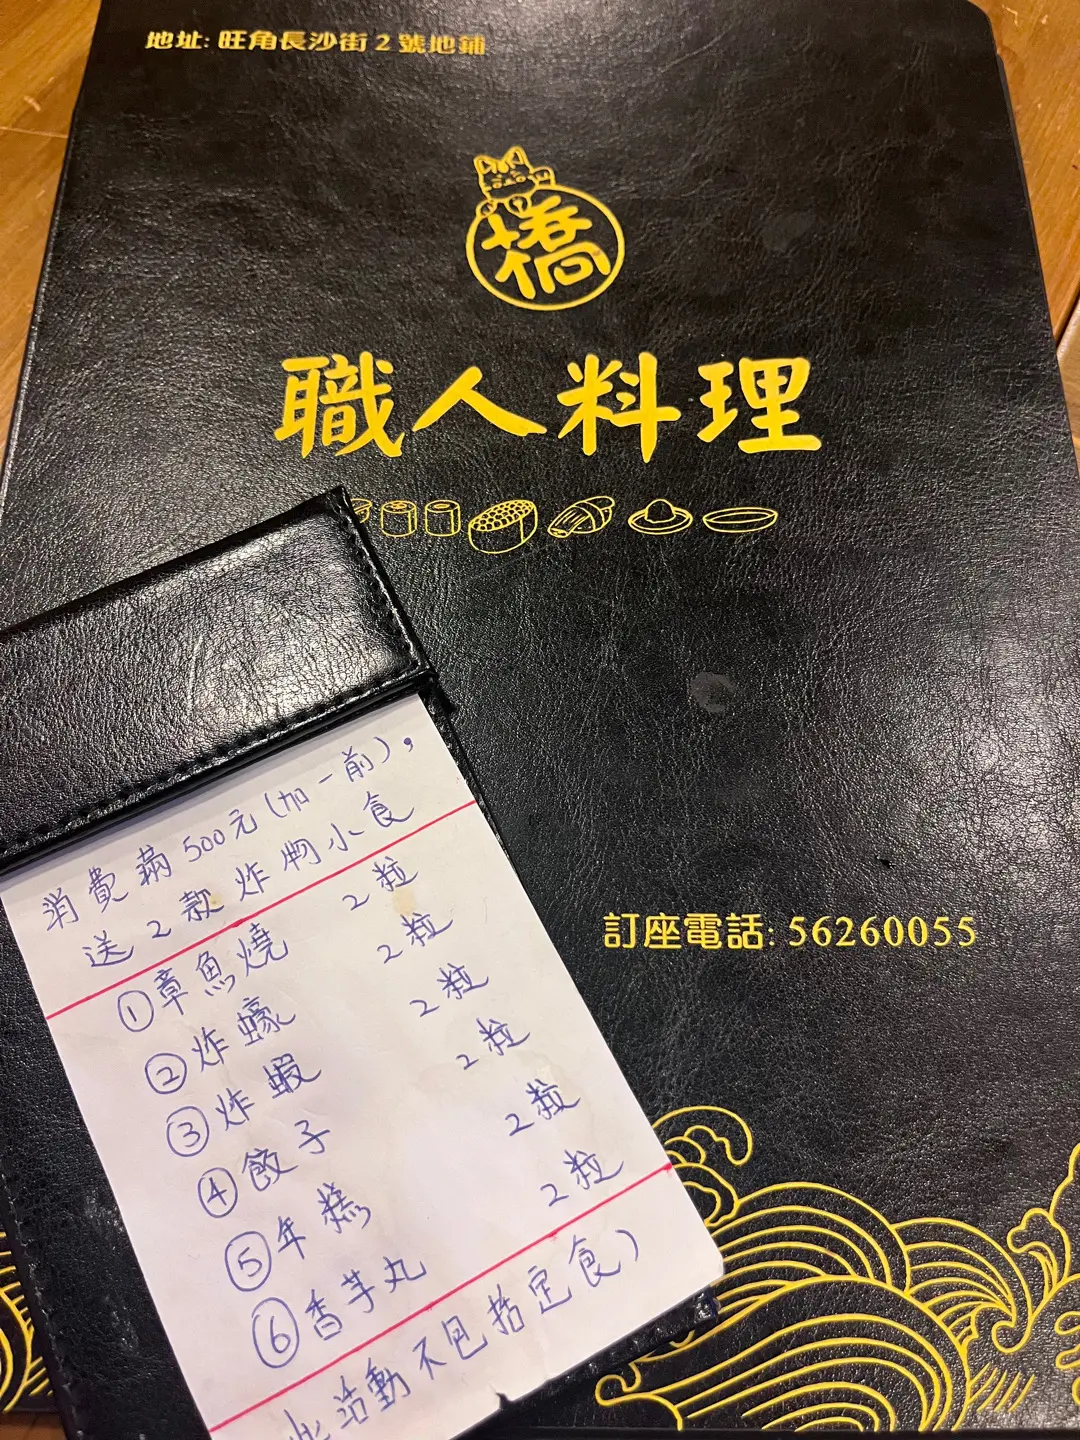 地址: 旺角長沙街 2 號地鋪
橋
職人料理
訂座電話: 56260055
消費滿500元(加一前),
送2款炸物小食
①章魚燒 2粒
②炸蠔 2粒
③炸蝦 2粒
④餃子 2粒
⑤年糕 2粒
⑥香芋丸 2粒
此活動不包括定食)